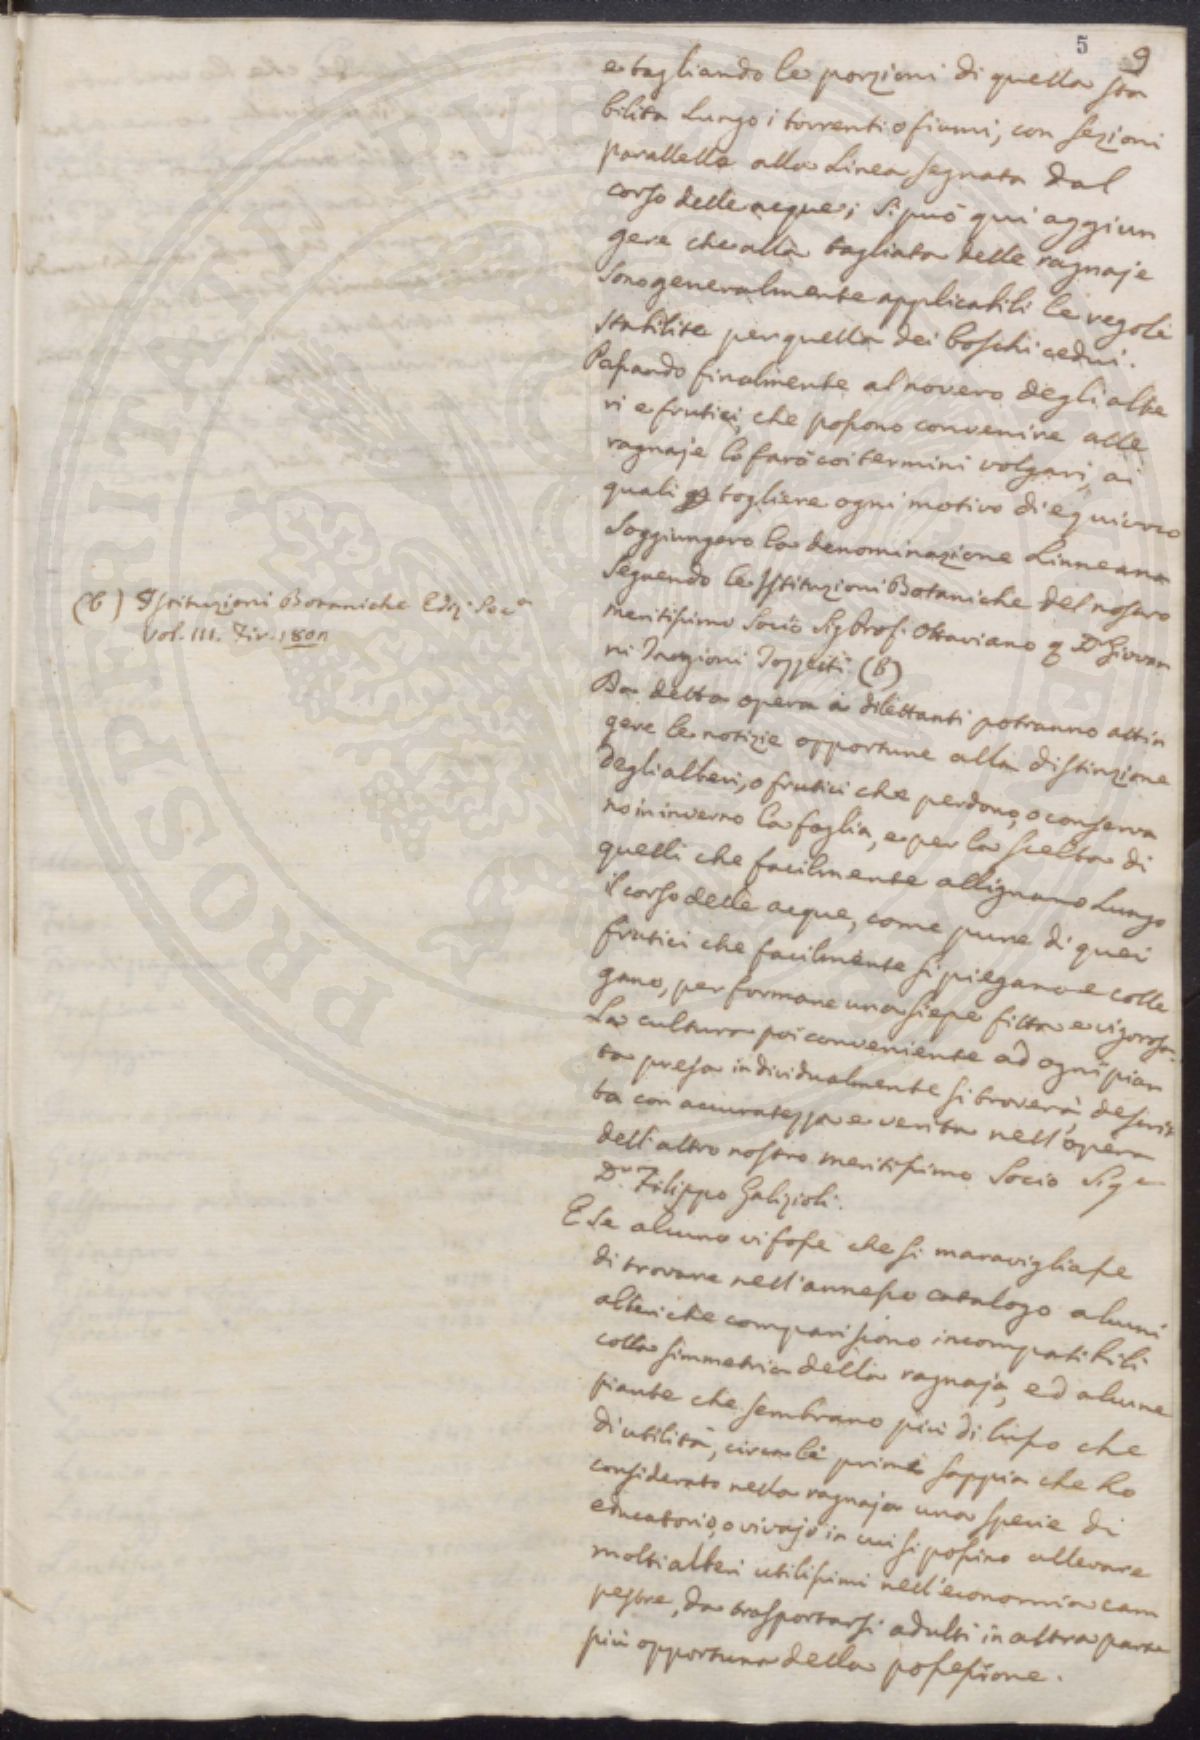 5 9
e tagliando le porzioni di quella sta
bilita lungo i torrenti o fiumi, con sezioni
parallelle alla linea segnata dal
corso delle acque; si può qui aggiun
gere che alla tagliata delle ragnaje
sono generalmente applicabili le regole
stabilite per quella dei boschi cedui.
Passando finalmente al novero degli albe
ri e frutici, che possono convenire alle
ragnaje lo farò coi termini volgari, ai
quali p togliere ogni motivo di equivoco
soggiungerò la denominazione Linneana
seguendo le Istituzioni Botaniche del nostro
meritissimo Socio Sig Prof. Ottaviano Dr Giovan
ni Targioni Tozzetti (B)
(B) Istituzioni Botaniche Ediz. Sec.a
Vol. III. Fir. 1801
Da detta opera i dilettanti potranno attin
gere le notizie opportune alla distinzione
degli alberi, o frutici che perdono, o conserva
no in inverno la foglia, e per la scelta di
quelli che facilmente allignano lungo
il corso delle acque, come pure di quei
frutici che facilmente si piegano e colle
gano, per formare una siepe fitta e vigorosa.
La cultura poi conveniente ad ogni pian
ta presa individualmente si troverà descrit
ta con accuratezza e verità nell'opera
dell'altro nostro meritissimo Socio Sig.r
Dr. Filippo Gallizioli.
E se alcuno vi fosse che si maravigliasse
di trovare nell'annesso catalogo alcuni
alberi che compariscono incompatibili
colla simmetria della ragnaja, ed alcune
piante che sembrano più di lusso che
di utilità, circa le prime sappia che ho
considerato nella ragnaja una specie di
educatorio, o vivajo in cui si possino allevare
molti alberi utilissimi nell'economia cam
pestre, da trasportarsi adulti in altra parte
più opportuna della possessione.
PROSPERITATI PVBLICAE